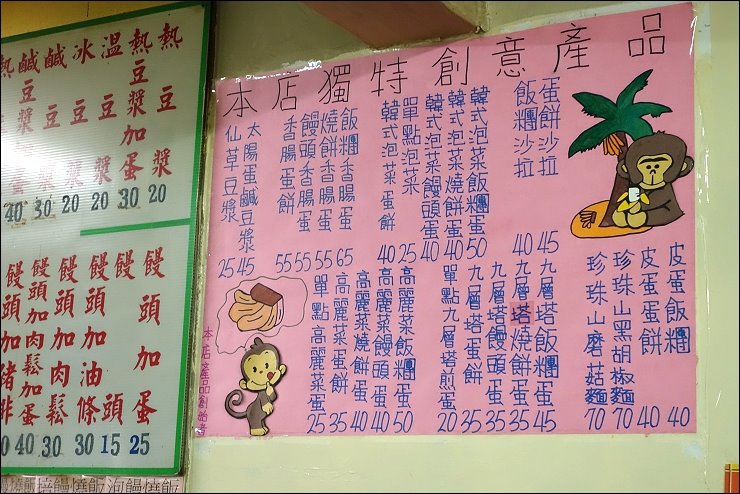 本店獨特創意產品
蛋餅沙拉 45
飯糰沙拉 40
韓式泡菜飯糰蛋 50
韓式泡菜燒餅蛋 40
韓式泡菜饅頭蛋 40
單點泡菜 25
韓式泡菜蛋餅 40
飯糰香腸蛋 65
燒餅香腸蛋 55
饅頭香腸蛋 55
香腸蛋餅 55
太腸蛋鹹豆漿 45
仙草豆漿 25
皮蛋飯糰 40
皮蛋蛋餅 40
珍珠山黑胡椒麵 70
珍珠山磨菇麵 70
九層塔飯糰蛋 45
九層塔燒餅蛋 35
九層塔饅頭蛋 35
九層塔蛋餅 35
單點九層塔煎蛋 20
高麗菜飯糰蛋 50
高麗菜饅頭蛋 40
高麗菜燒餅蛋 40
高麗菜蛋餅 35
單點高麗菜蛋 25
本店產品創始者
熱豆漿 20
熱豆漿加蛋 30
溫豆漿 20
冰豆漿 20
鹹豆漿 30
鹹豆漿加蛋 40
熱
饅頭加蛋 25
饅頭 15
饅頭加油條 30
饅頭加肉鬆 30
饅頭加肉鬆加蛋 40
饅頭加豬排